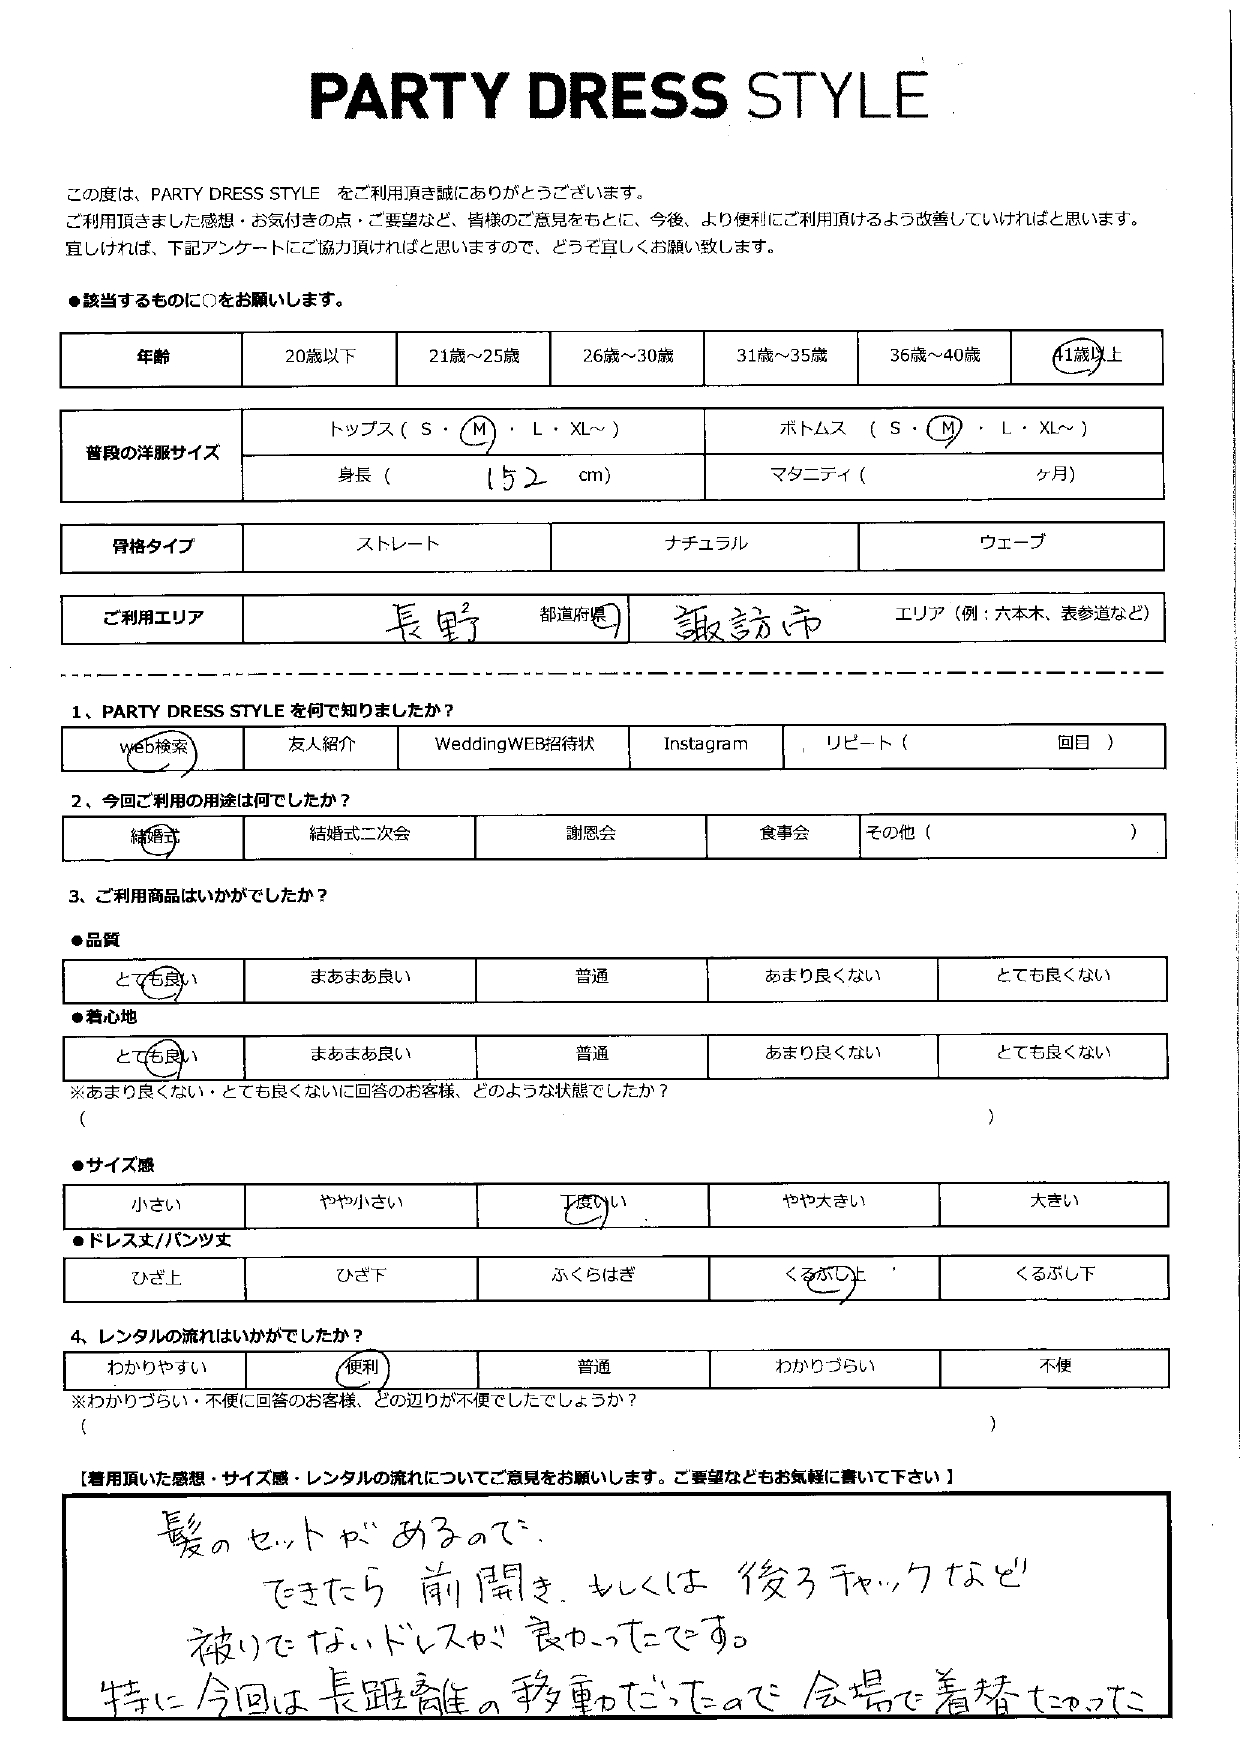 PARTY DRESS STYLE
この度は、PARTY DRESS STYLE をご利用頂き誠にありがとうございます。
ご利用頂きました感想・お気付きの点・ご要望など、皆様のご意見をもとに、今後、より便利にご利用頂けるよう改善していければと思います。
宜しければ、下記アンケートにご協力頂ければと思いますので、どうぞ宜しくお願い致します。
●該当するものに○をお願いします。
年齢 20歳以下 21歳～25歳 26歳～30歳 31歳～35歳 36歳～40歳 41歳以上
普段の洋服サイズ
トップス ( S ・ M ・ L ・ XL～ ) ボトムス ( S ・ M ・ L ・ XL～ )
身長 ( 152 cm) マタニティ ( ヶ月)
骨格タイプ ストレート ナチュラル ウェーブ
ご利用エリア 長野 都道府県 諏訪市 エリア（例：六本木、表参道など）
1、PARTY DRESS STYLE を何で知りましたか？
web検索 友人紹介 WeddingWEB招待状 Instagram リピート ( 回目 )
2、今回ご利用の用途は何でしたか？
結婚式 結婚式二次会 謝恩会 食事会 その他 ( )
3、ご利用商品はいかがでしたか？
●品質
とても良い まあまあ良い 普通 あまり良くない とても良くない
●着心地
とても良い まあまあ良い 普通 あまり良くない とても良くない
※あまり良くない・とても良くないに回答のお客様、どのような状態でしたか？
( )
●サイズ感
小さい やや小さい 丁度いい やや大きい 大きい
●ドレス丈/パンツ丈
ひざ上 ひざ下 ふくらはぎ くるぶし上 くるぶし下
4、レンタルの流れはいかがでしたか？
わかりやすい 便利 普通 わかりづらい 不便
※わかりづらい・不便に回答のお客様、どの辺りが不便でしたでしょうか？
( )
【着用頂いた感想・サイズ感・レンタルの流れについてご意見をお願いします。ご要望などもお気軽に書いて下さい 】
髪のセットがあるので、
できたら 前開き、もしくは 後ろチャックなど
被りでないドレスが 良かったです。
特に今回は長距離の移動だったので 会場で着替たかった